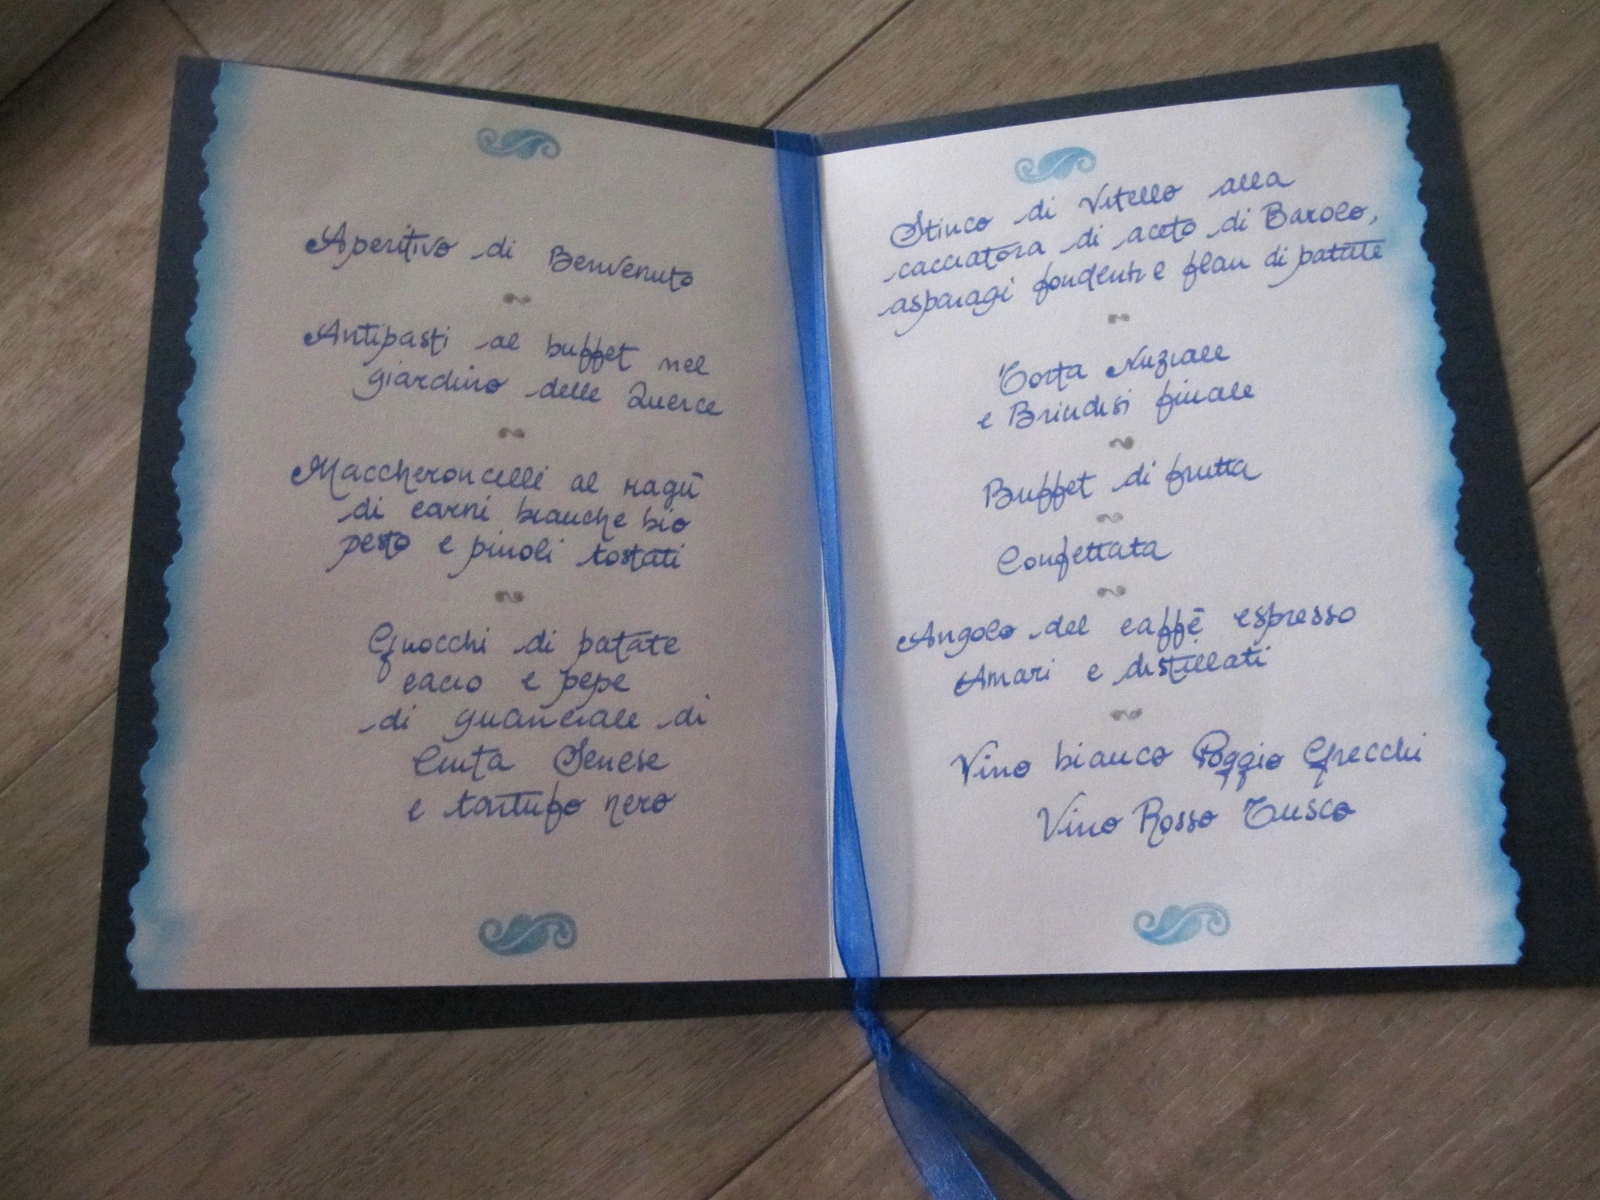 Aperitivo di Benvenuto
Antipasti al buffet nel
giardino delle Querce
Maccheroncelli al ragù
di carni bianche bio
pesto e pinoli tostati
Gnocchi di patate
cacio e pepe
di guanciale di
Cinta Senese
e tartufo nero
Stinco di Vitello alla
cacciatora di aceto di Barolo,
asparagi fondenti e flan di patate
Torta Nuziale
e Brindisi finale
Buffet di frutta
Confettata
Angolo del caffè espresso
Amari e distillati
Vino bianco Poggio Grecchi
Vino Rosso Tusco